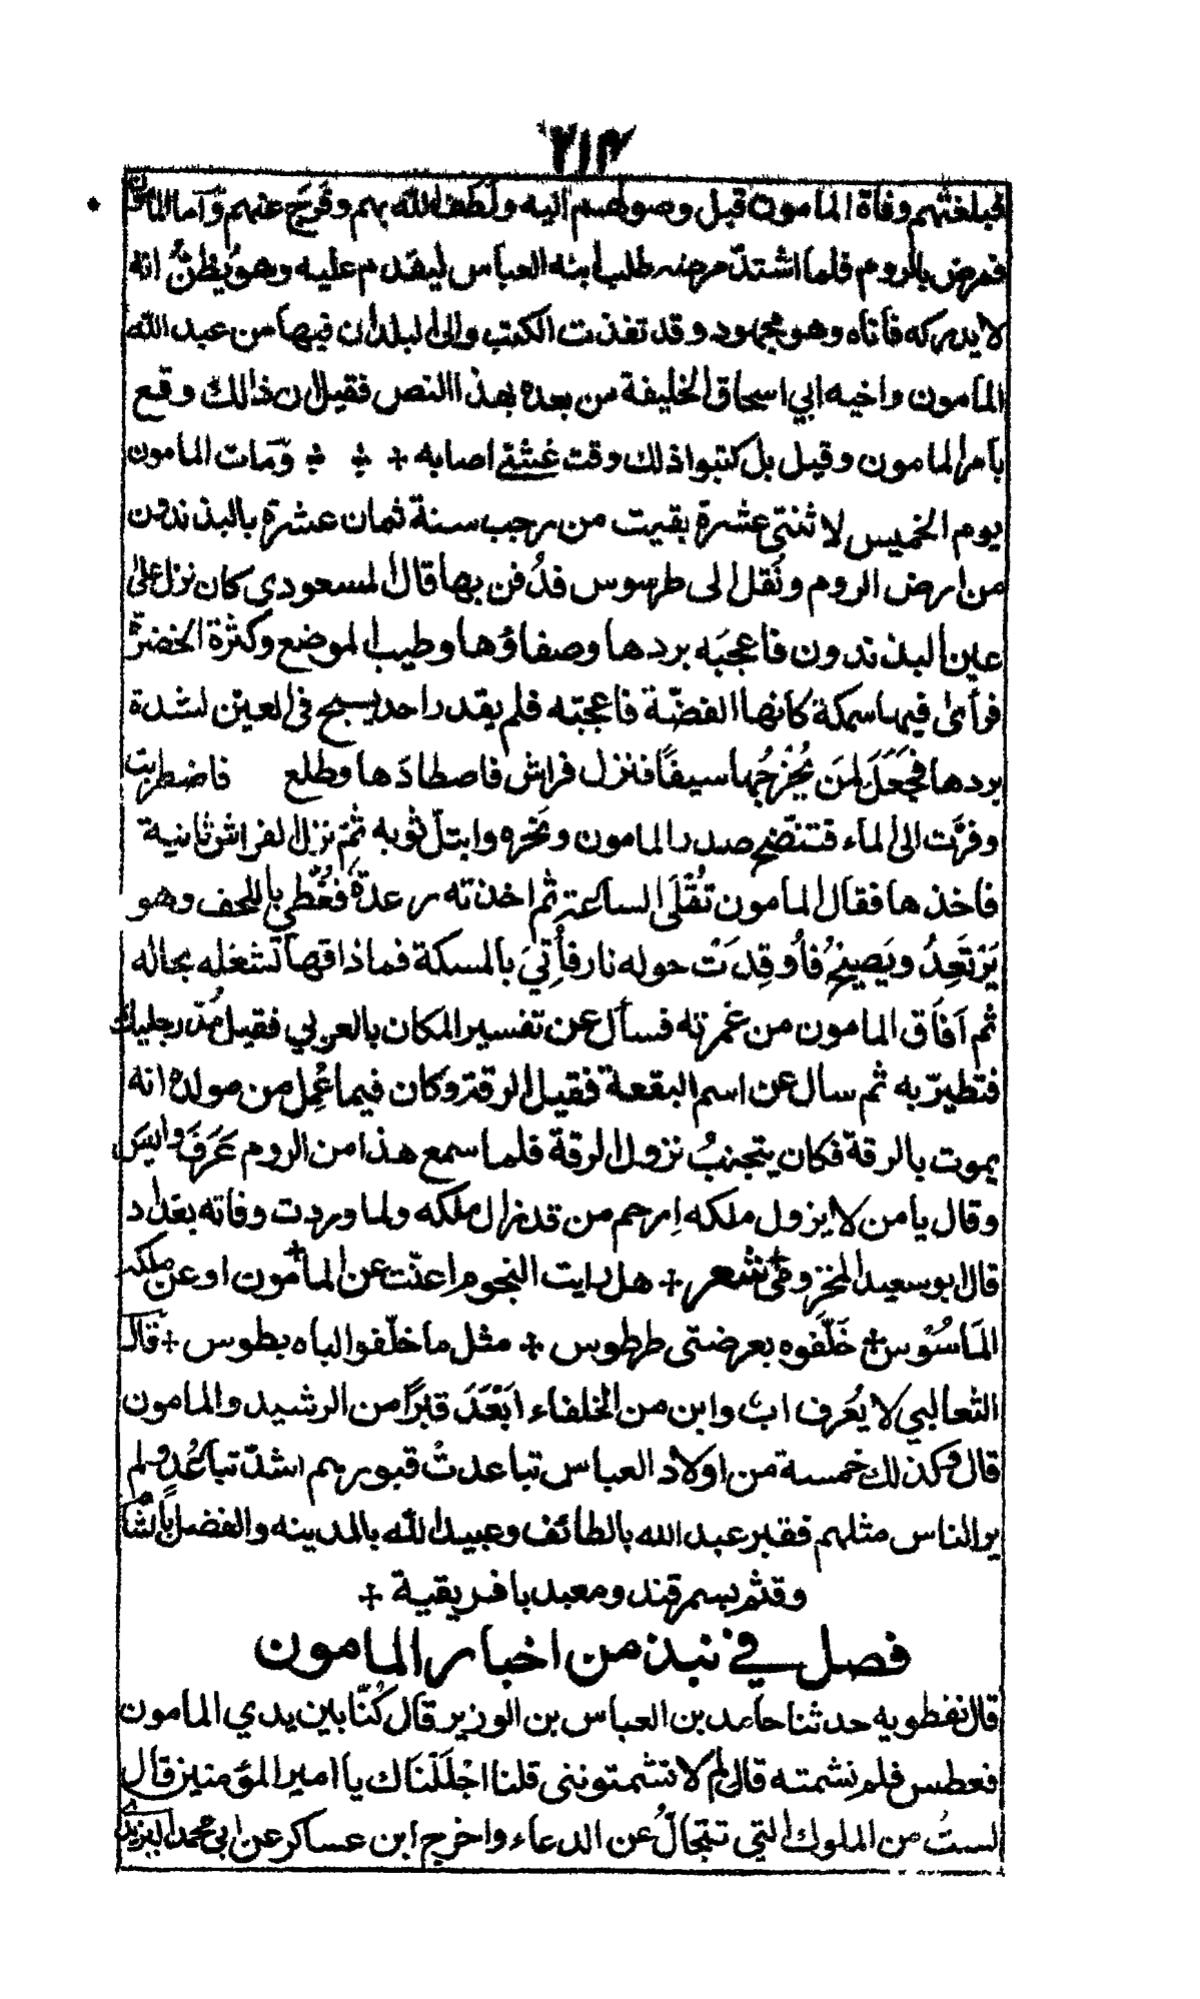 ٢١٣
فبلغتهم وفاة المامون قبل وصولهم اليه ولَطَفَ الله بهم وفَرَّجَ عنهم وَّاَما المامون
فمرض بالروم فلما اشتدّ مرضه طلب ابنه العباس ليقدم عليه وهو يظنُّ انه
لا يدركه فأتاه وهو مجهود وقد نفذت الكتب والى البلدان فيها من عبد الله
المامون واخيه ابي اسحاق الخليفة من بعده بهذا النص فقيل ان ذالك وقع
بامر المامون وقيل بل كتبوا ذلك وقت غشيٍ اصابه ÷ ÷ ÷ وَمَات المامون
يوم الخميس لاثنتي عشرة بقيت من رجب سنة ثمان عشرة بالبذندون
من ارض الروم ونُقل الى طرسوس فدُفن بها قال المسعودى كان نزل على
عين البذندون فاعجبَه بردها وصفاؤها وطيب الموضع وكثرة الخضرة
فرأى فيها سمكة كانها الفضّة فاعجبته فلم يقدر احد يسبح فى العين لشدة
بردها فجَعَلَ لمَن يُخْرِجُها سيفًا فنزل فراش فاصطادَها وطلع فاضطربت
وفرَّت الى الماء فتنضّح صدر المامون ونحره وابتلّ ثوبه ثمّ نزل الفراش ثانية
فاخذها فقال المامون تُقْلَى الساعة ثم اخذته رعدةٌ فغُطّي باللحف وهو
يَرْتَعِدُ ويَصِيحُ فاُوقِدَتْ حوله نار فأُتِيَ بالمسكة فما ذاقها لشغله بحاله
ثم اَفاَق المامون من غمرته فسأل عن تفسير المكان بالعربي فقيل مُدّ رجليك
فتطيرّ به ثم سال عن اسم البقعة فقيل الرقة وكان فيما عُمِل من مولده انه
يموت بالرقة فكان يتجنبُ نزول الرقة فلما سمع هذا من الروم عَرَفَ وايسَ
وقال يا من لا يزول ملكه اِرحم من قد زال ملكه ولما وردت وفاته بغداد
قال ابو سعيد المخزومي شعر ÷ هل رايت النجوم اغنت عن المامون او عن ملكه
المَاسُوْس ÷ خَلّفوه بعرضتى طرطوس ÷ مثل ما خلّفوا اباه بطوس ÷ قال
الثعالبي لا يُعرف ابٌ وابن من الخلفاء اَبْعَدَ قبرًا من الرشيد والمامون
قال وكذلك خمسة من اولاد العباس تباعدتْ قبورهم اشدّ تباعُد ولم
ير الناس مثلهم فقبر عبد الله بالطائف وعبيد الله بالمدينه والفضل بالشام
وقثم بسمرقند ومعبد بافريقية ÷
فصل في نبذ من اخبار المامون
قال نفطويه حدثنا حامد بن العباس بن الوزير قال كُنّا بين يدي المامون
فعطس فلم نشمته قال لِمَ لا تشمتوننى قلنا اجْلَلْنَاك يا امير المؤمنين قال
لستُ من الملوك التي تتجالُّ عن الدعاء واخرج ابن عساكر عن ابي محمد اليزيدى